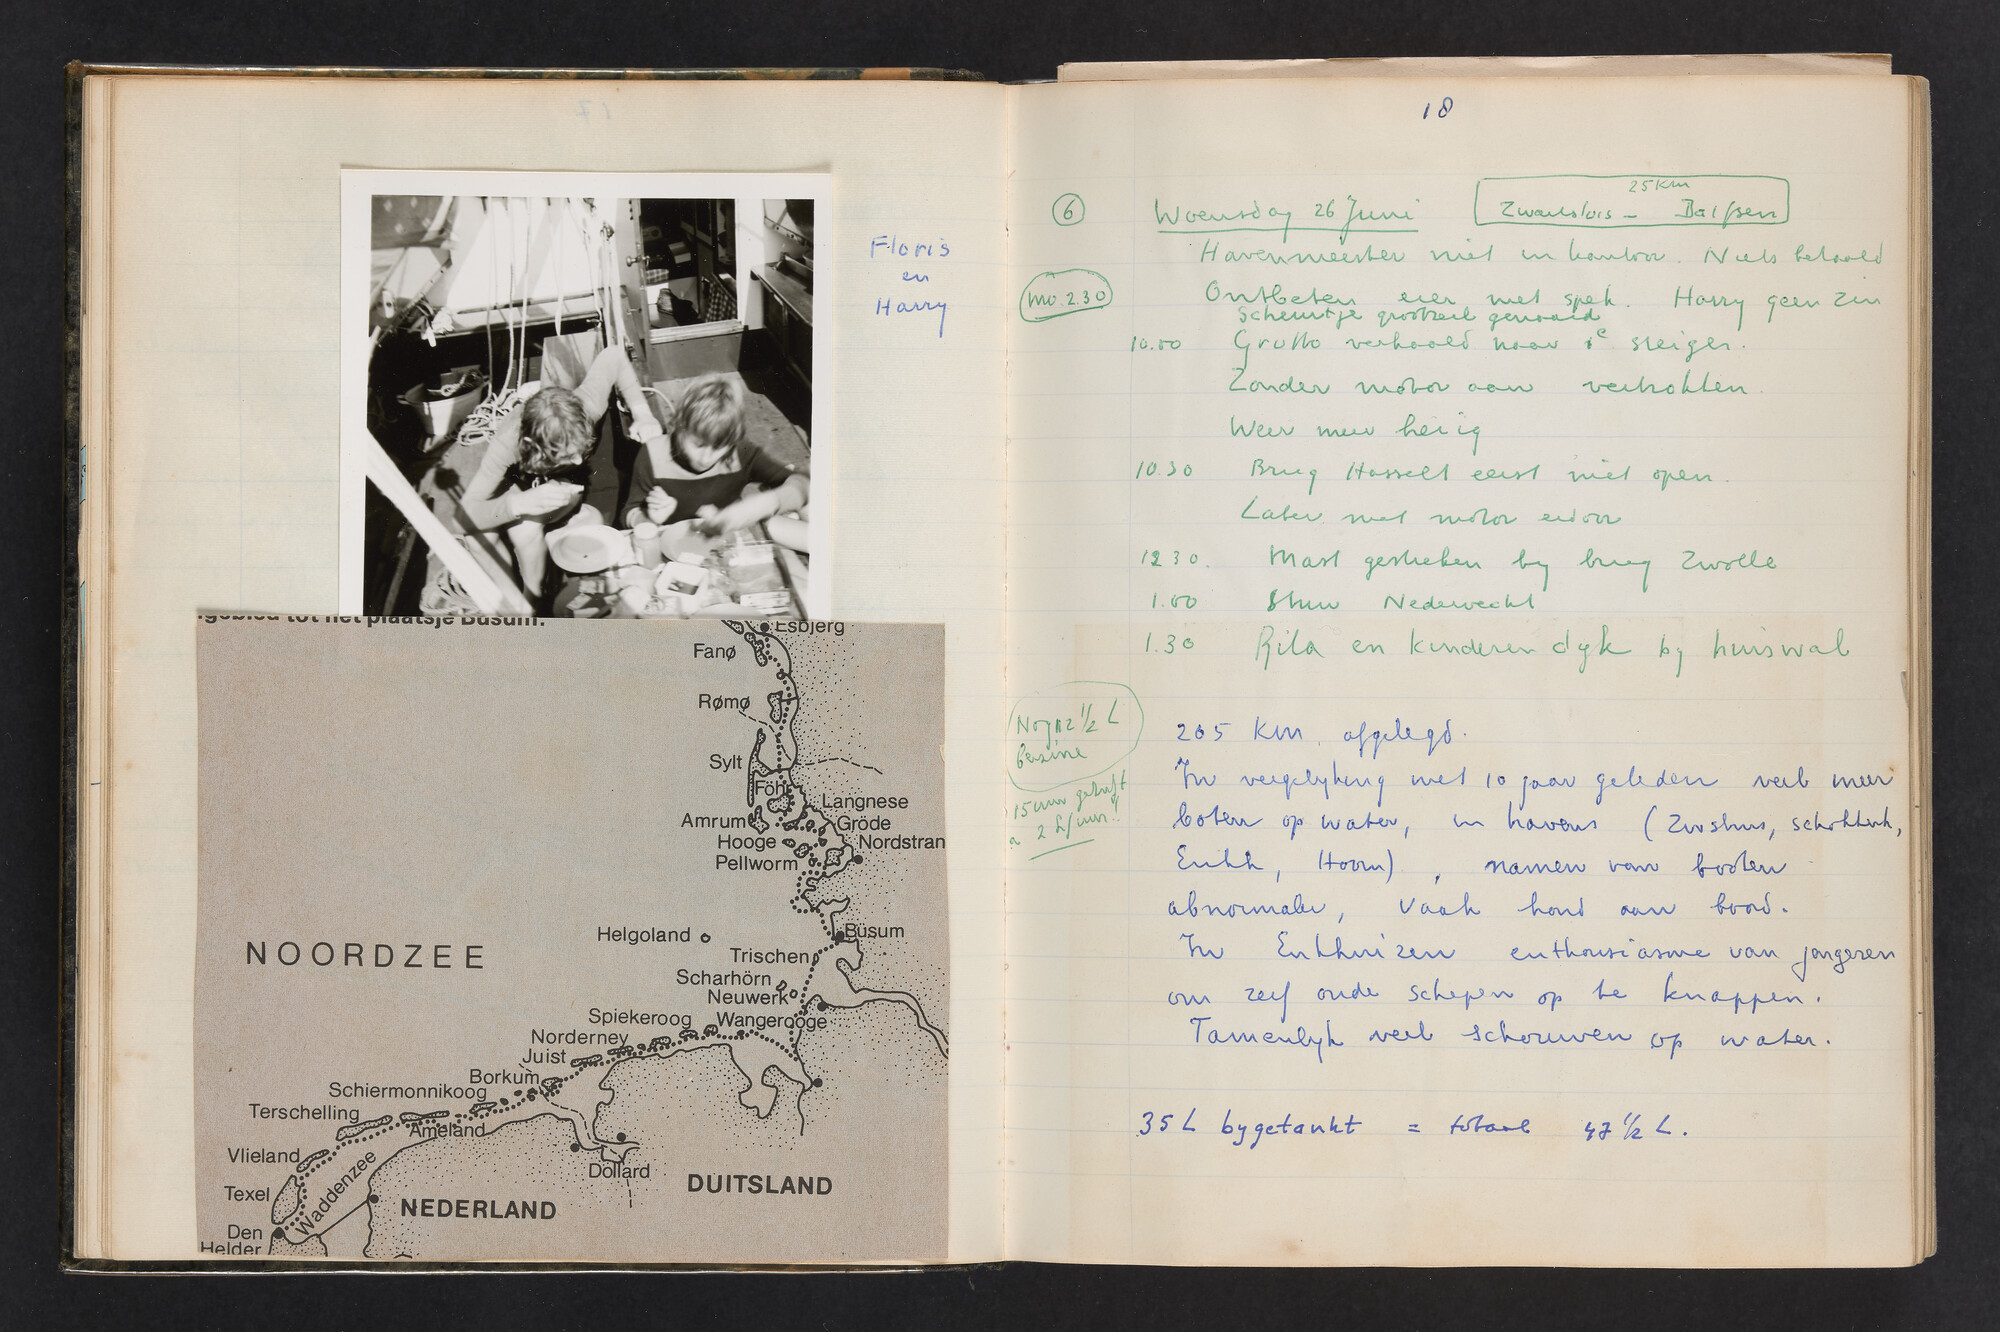 17
Floris
en
Harry
gebied tot het plaatsje Busum.
Esbjerg
Fanø
Rømø
Sylt
Föhr
Langnese
Amrum
Gröde
Hooge
Nordstran
Pellworm
Helgoland
Busum
Trischen
NOORDZEE
Scharhörn
Neuwerk
Spiekeroog
Wangerooge
Norderney
Juist
Borkum
Schiermonnikoog
Terschelling
Ameland
Vlieland
Waddenzee
Dollard
Texel
DUITSLAND
NEDERLAND
Den
Helder
18
25 Km
6 Woensdag 26 Juni Zwartsluis - Balfsen
Havenmeester niet in kantoor. Niets betaald
mo. 2.30 Ontbeten eier met spek. Harry geen zin
scheurtje grootzeil genaaid
10.00 Grutto verhaald naar 1e steiger.
Zonder motor aan vertrokken.
Weer mee heiig
10.30 Brug Hasselt eerst niet open.
Later met motor erdoor
12 30. Mast gestreken by brug Zwolle
1.00 Sluis
1.30 Rita en kinderen dyk by huiswal
Nog 12 1/2 L
benzine
15 uur getuft
a 2 L/uur!!
205 Km. afgelegd.
In vergelyking met 10 jaar geleden veel meer
boten op water, in havens (
Enkh, Hoorn), namen van boten
abnormaler, Vaak hond aan boord.
In Enkhuizen enthousiasme van jongeren
om zelf oude schepen op te knappen.
Tamenlyk veel schouwen op water.
35 L bygetankt = totaal 47 1/2 L.